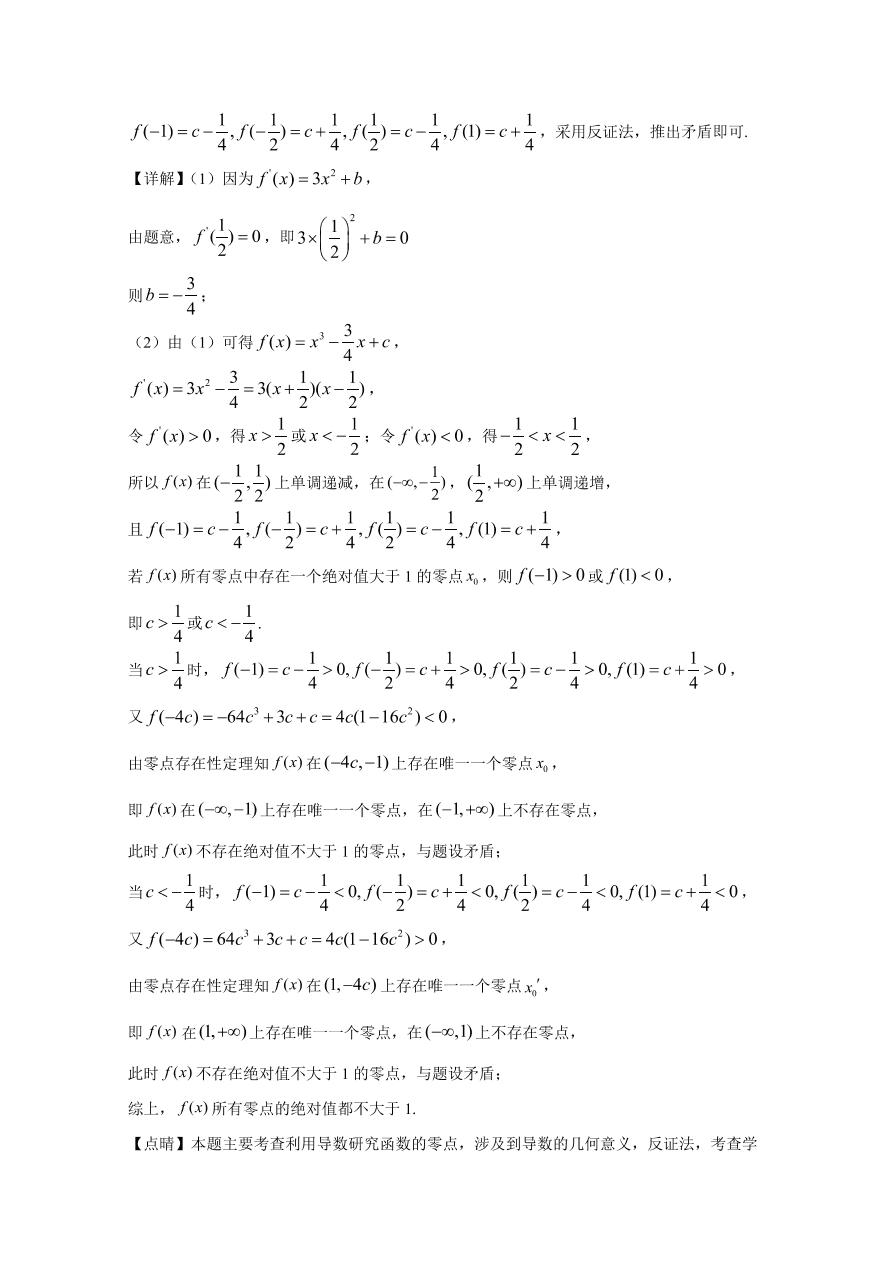 f(−1) = c − 1/4, f(−1/2) = c + 1/4, f(1/2) = c − 1/4, f(1) = c + 1/4 ，采用反证法，推出矛盾即可.
【详解】（1）因为 f'(x) = 3x² + b ，
由题意， f'(1/2) = 0 ，即 3×(1/2)² + b = 0
则 b = −3/4 ；
（2）由（1）可得 f(x) = x³ − 3/4 x + c ，
f'(x) = 3x² − 3/4 = 3(x + 1/2)(x − 1/2) ，
令 f'(x) > 0 ，得 x > 1/2 或 x < −1/2 ；令 f'(x) < 0 ，得 −1/2 < x < 1/2 ，
所以 f(x) 在 (−1/2, 1/2) 上单调递减，在 (−∞, −1/2) ， (1/2, +∞) 上单调递增，
且 f(−1) = c − 1/4, f(−1/2) = c + 1/4, f(1/2) = c − 1/4, f(1) = c + 1/4 ，
若 f(x) 所有零点中存在一个绝对值大于 1 的零点 x₀ ，则 f(−1) > 0 或 f(1) < 0 ，
即 c > 1/4 或 c < −1/4 .
当 c > 1/4 时， f(−1) = c − 1/4 > 0, f(−1/2) = c + 1/4 > 0, f(1/2) = c − 1/4 > 0, f(1) = c + 1/4 > 0 ，
又 f(−4c) = −64c³ + 3c + c = 4c(1 − 16c²) < 0 ，
由零点存在性定理知 f(x) 在 (−4c, −1) 上存在唯一一个零点 x₀ ，
即 f(x) 在 (−∞, −1) 上存在唯一一个零点，在 (−1, +∞) 上不存在零点，
此时 f(x) 不存在绝对值不大于 1 的零点，与题设矛盾；
当 c < −1/4 时， f(−1) = c − 1/4 < 0, f(−1/2) = c + 1/4 < 0, f(1/2) = c − 1/4 < 0, f(1) = c + 1/4 < 0 ，
又 f(−4c) = 64c³ + 3c + c = 4c(1 − 16c²) > 0 ，
由零点存在性定理知 f(x) 在 (1, −4c) 上存在唯一一个零点 x₀′ ，
即 f(x) 在 (1, +∞) 上存在唯一一个零点，在 (−∞, 1) 上不存在零点，
此时 f(x) 不存在绝对值不大于 1 的零点，与题设矛盾；
综上， f(x) 所有零点的绝对值都不大于 1.
【点晴】本题主要考查利用导数研究函数的零点，涉及到导数的几何意义，反证法，考查学